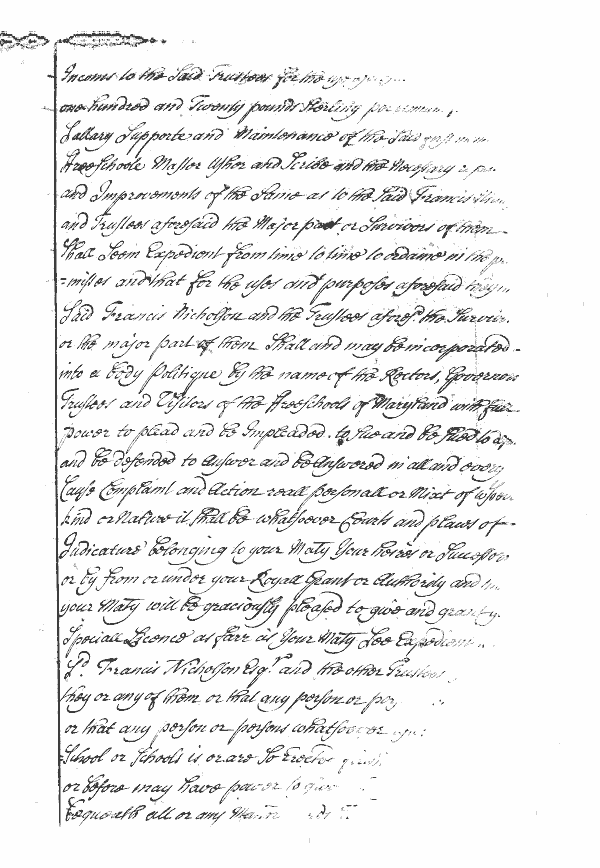 Income to the Said Trustees for the
one hundred and Twenty pounds Sterling per
Sallary Supporte and Maintenance of the Said
Freeschoole Master Usher and Scribe and the Necessary
and Improvements of the Same as to the Said Francis
and Trustees aforesaid the Major part or Survivors of them
Shall Seem Expedient from time to time to ordaine in the
=mises and that for the uses and purposes aforesaid
Said Francis Nicholson and the Trustees afores:d the
or the major part of them Shall and may be incorporated
into a body Politique by the name of the Rectors, Governors
Trustees and Visitors of the Freeschools of Maryland with full
power to plead and be Impleaded to Sue and be Sued to
and be defended to Answer and be Answered in all and every
Cause Complaint and Action reall personall or Mixt of
kind or Nature it Shall be whatsoever Courts and places of
Judicature belonging to your Maty Your heires or Successors
or by from or under your Royall Grant or Authority and
your Maty will be graciously pleased to give and grant
Speciall Licence as farr as Your Maty See Expedient
Sd. Francis Nicholson Esqr. and the other Trustees
they or any of them or that any person or
or that any person or persons whatsoever
School or Schools is or are So Erected
or before may have power to give
bequeath all or any